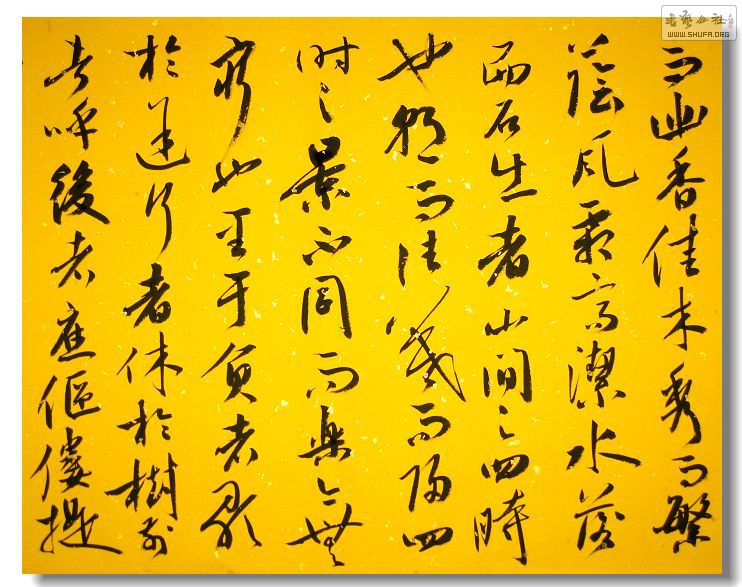 而幽香佳木秀而繁
蔭风霜高潔水落
而石出者山间之四時
也朝而往暮而归四
时之景不同而樂亦無
窮也至于负者歌
於途行者休於樹前
者呼後者應傴僂提
书艺公社
WWW.SHUFA.ORG